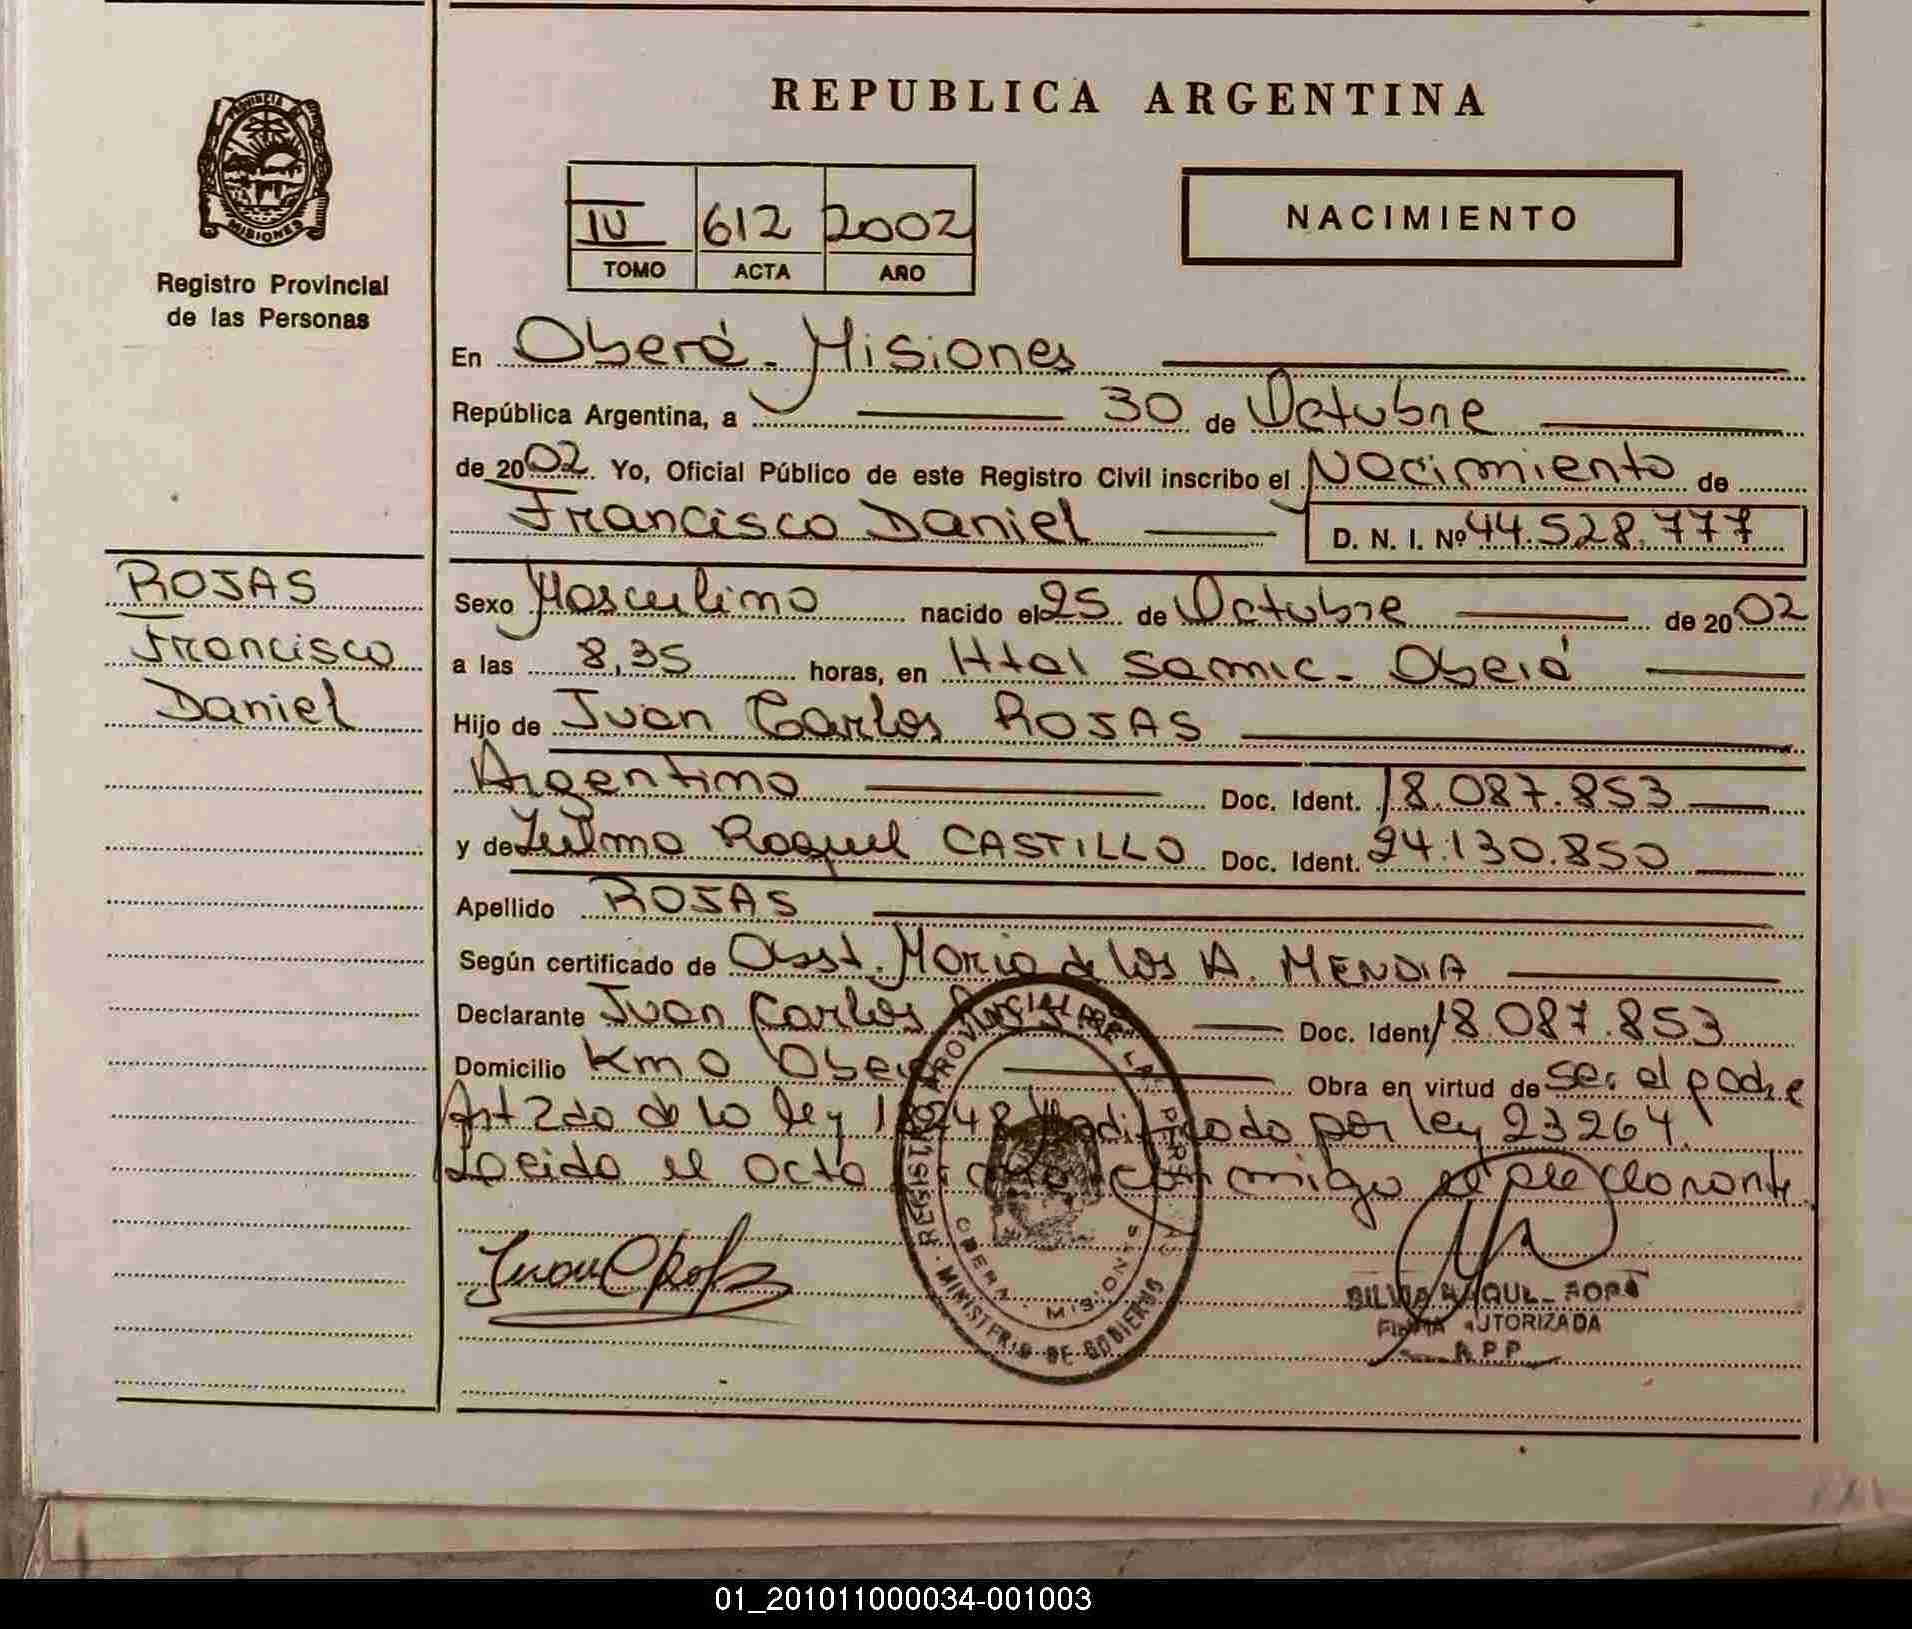 REPUBLICA ARGENTINA
PROVINCIA DE
MISIONES
Registro Provincial
de las Personas
IV 612 2002
TOMO ACTA AÑO
NACIMIENTO
En Oberá - Misiones
República Argentina, a 30 de Octubre
de 2002. Yo, Oficial Público de este Registro Civil inscribo el Nacimiento de
Francisco Daniel D. N. I. Nº 44.528.777
ROJAS
Francisco
Daniel
Sexo Masculino nacido el 25 de Octubre de 2002
a las 8,35 horas, en Htal Samic - Oberá
Hijo de Juan Carlos ROJAS
Argentino Doc. Ident. 18.087.853
y de Raquel CASTILLO Doc. Ident. 24.130.850
Apellido ROJAS
Según certificado de Obst. Maria de los A. MENDIA
Declarante Juan Carlos Doc. Ident 18.087.853
Domicilio Km 0 Oberá Obra en virtud de ser el padre
Art 2do de la ley 18248 Modificado por ley 23264.
Leida el acta conmigo el declarante
REGISTRO PROVINCIAL DE LAS PERSONAS
OBERA - MISIONES
MINISTERIO DE GOBIERNO
SILVIA RAQUEL
FIRMA AUTORIZADA
R.P.P.
01_201011000034-001003